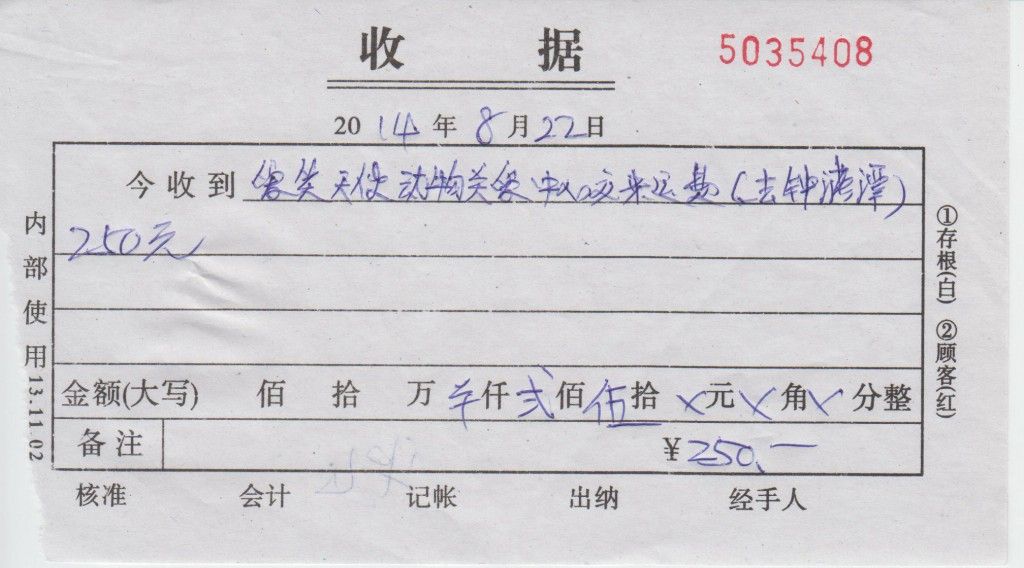 收 据
5035408
2014年8月22日
今收到 微笑天使动物关爱中心交来运费(去钟落潭)
250元
金额(大写) 佰 拾 万 仟 弍佰 伍拾 ×元 ×角 × 分整
备注 ¥250.一
核准 会计 记帐 出纳 经手人
内部使用 13.11.02
①存根(白) ②顾客(红)